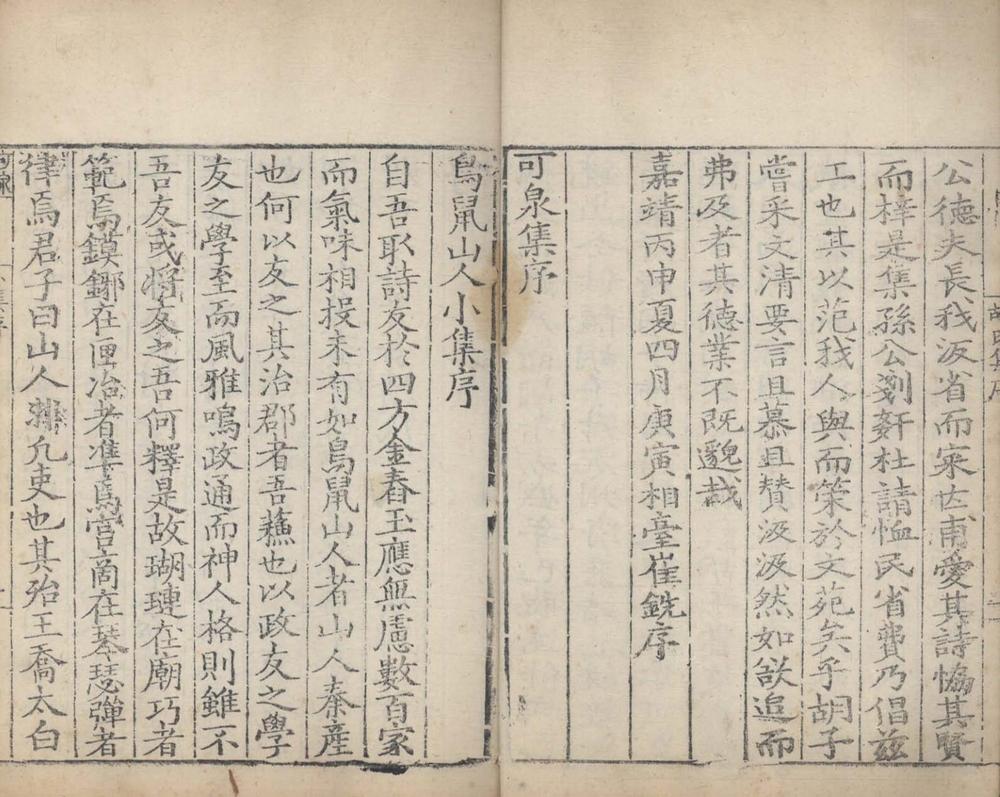 公德夫長我汲省而寀世甫愛其詩恊其賢
而梓是集孫公剗姧杜請恤民省費乃倡兹
工也其以范我人與而策於文苑矣乎胡子
嘗采文清要言且慕且賛汲汲然如欲追而
弗及者其德業不既邈㦲
嘉靖丙申夏四月庚寅相臺崔銑序
可泉集序
鳥鼠山人小集序
自吾取詩友於四方金春玉應無慮數百家
而氣味相投未有如鳥鼠山人者山人秦産
也何以友之其治郡者吾蘓也以政友之學
友之學至而風雅鳴政通而神人格則雖不
吾友或將友之吾何釋是故瑚璉在廟巧者
範焉鏌鎁在匣冶者凖焉宫啇在琴瑟彈者
律焉君子曰山人非凢吏也其殆王喬太白